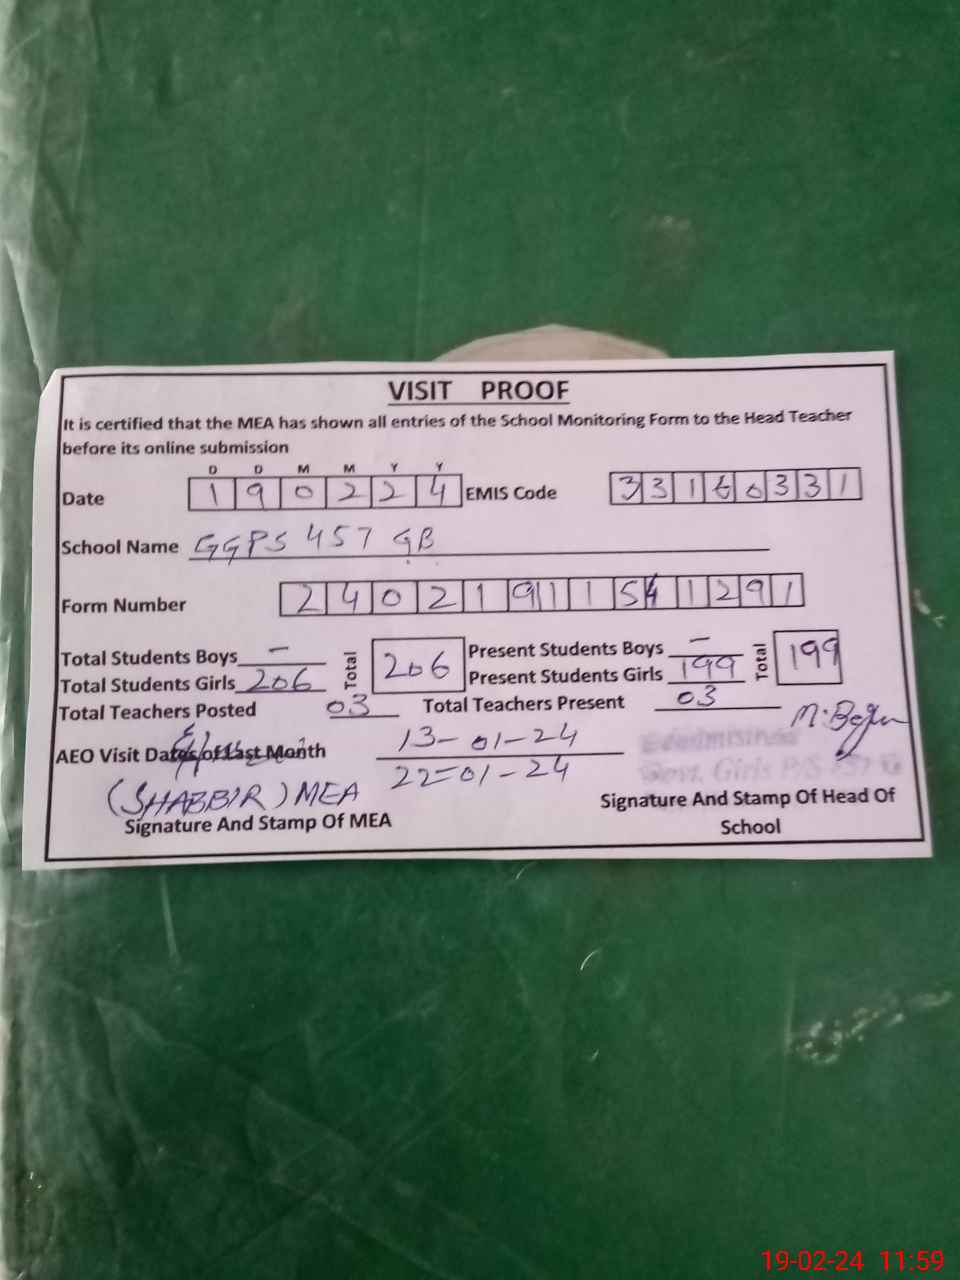 VISIT PROOF
It is certified that the MEA has shown all entries of the School Monitoring Form to the Head Teacher
before its online submission
D D M M Y Y
Date 190224 EMIS Code 33160331
School Name GGPS 457 GB
Form Number 24021911541291
Total Students Boys - Total 206 Present Students Boys - Total 199
Total Students Girls 206 Present Students Girls 199
Total Teachers Posted 03 Total Teachers Present 03
AEO Visit Dates of Last Month 13-01-24
22-01-24
Govt. Girls P/S
(SHABBIR) MEA
Signature And Stamp Of MEA
Signature And Stamp Of Head Of
School
19-02-24 11:59